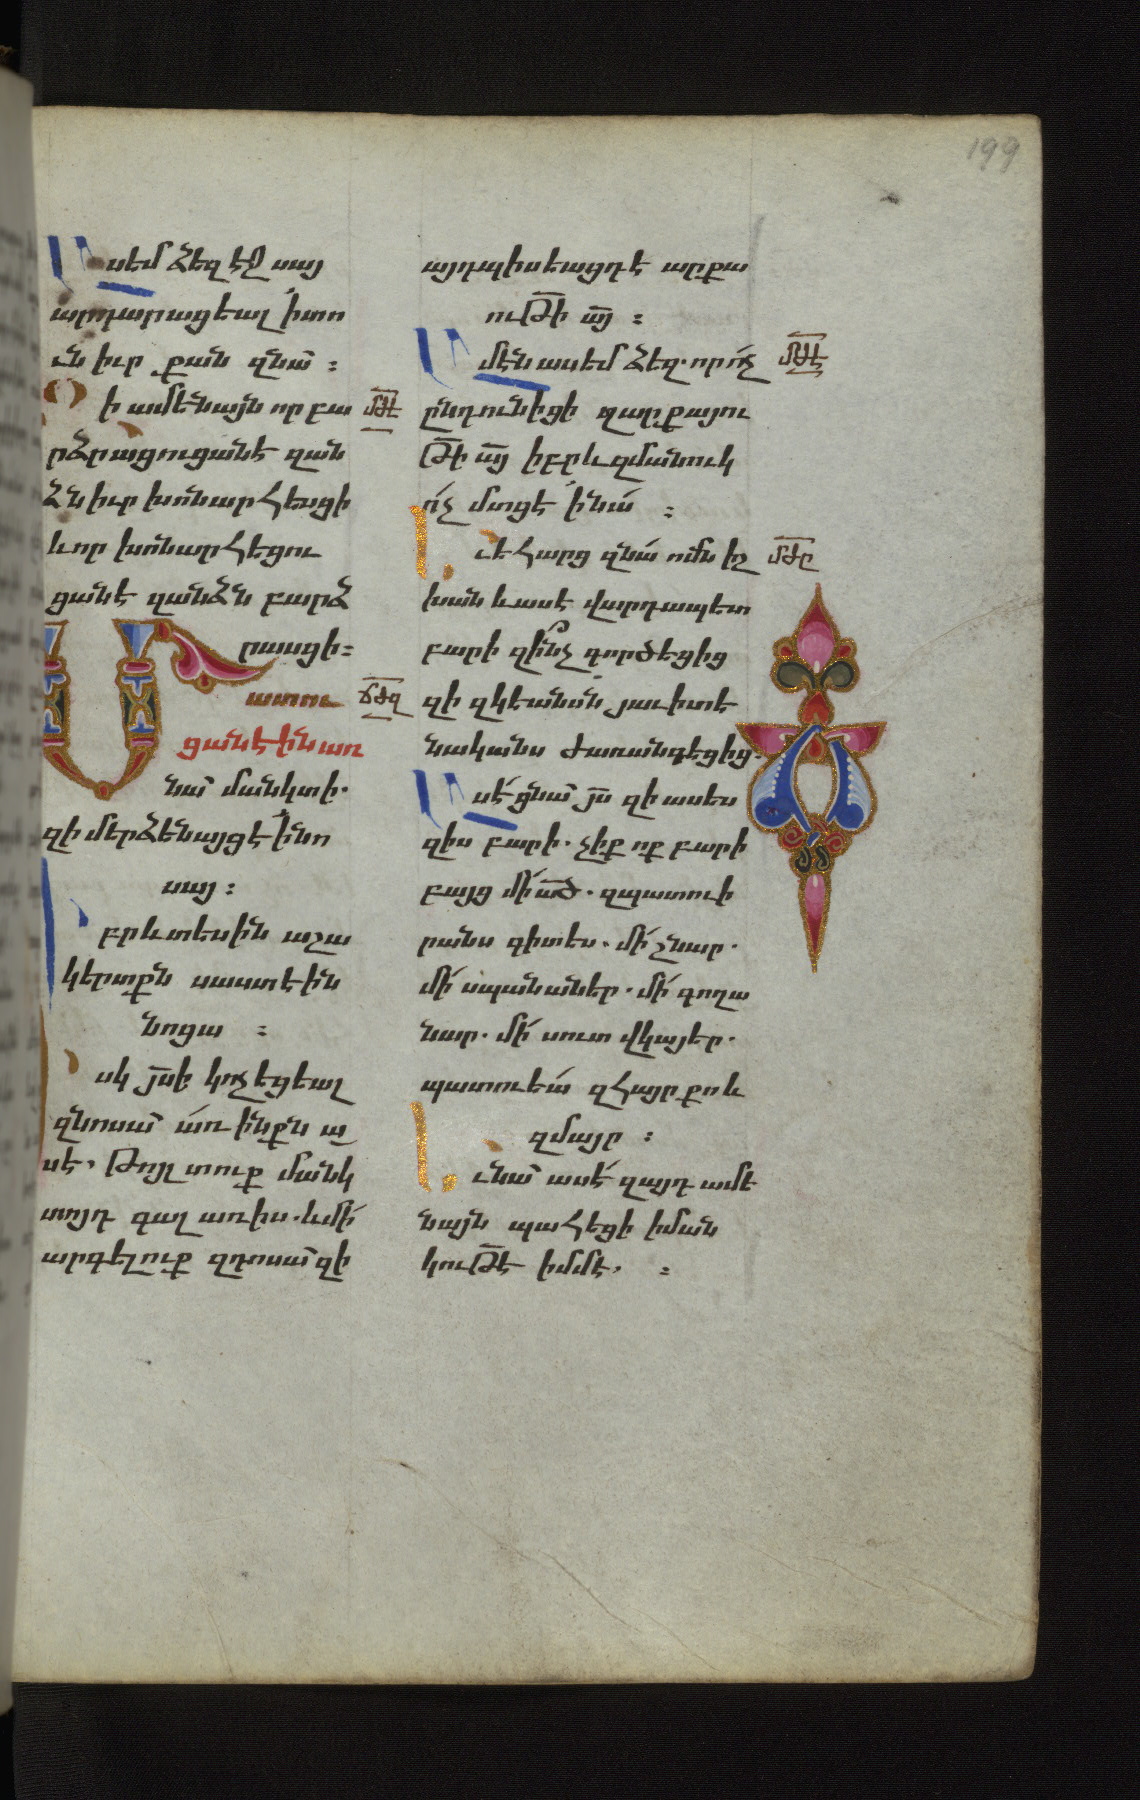 199
Ասեմ ձեզ էջ սայ
արդարացեալ ՛ի տո
ւն իւր քան զնա՞ :
Զի ամենայն որ բա
րձրացուցանէ զան
ձն իւր խոնարհեսցի
և որ խոնարհեցու
ցանէ զանձն բարձ
րասցի :
Մատու
ցանէին առ
նա՞ մանկտի .
զի մերձենայցէ ՛ի նո
սայ :
Իբրև տեսին աշա
կերտքն սաստէին
նոցա :
Իսկ յ̅ս̅ի կոչեցեալ
զնոսա՞ առ ինքն ա
սէ , Թոյլ տուք մանկ
տոյդ գալ առ իս . և մի՛
արգելուք զդոսա՞ զի
մ̅ժ̅է̅
ճ̅ժ̅զ̅
այդպիսեացդ է արքա
ու̅թ̅ի ա̅յ̅ :
Ամէն ասեմ ձեզ . որ ո՛չ
ընդունիցի զարքայու
թ̅ի ա̅յ̅ իբրև զմանուկ
ո՛չ մտցէ ՛ի նա՛ :
Եւ եհարց զնա՛ ոմն իշ
խան և ասէ վարդապետ
բարի զի՞նչ գործեցից
զի զկեանսն յաւիտե
նականս ժառանգեցից .
Ասէ ցնա՞ յ̅ս̅ զի ասես
զիս բարի . չիք ոք բարի
բայց մի՛ ա̅ծ̅ . զպատուի
րանս գիտես . մի՛ շնար .
մի՛ սպանաներ . մի՛ գողա
նար . մի՛ սուտ վկայեր .
պատուեա՛ զհայր քո և
զմայր :
Եւ նա՞ ասէ զայդ ամե
նայն պահեցի ՛ի ման
կու̅թ̅է իմմէ , :
մ̅ժ̅է̅
մ̅ժ̅ը̅